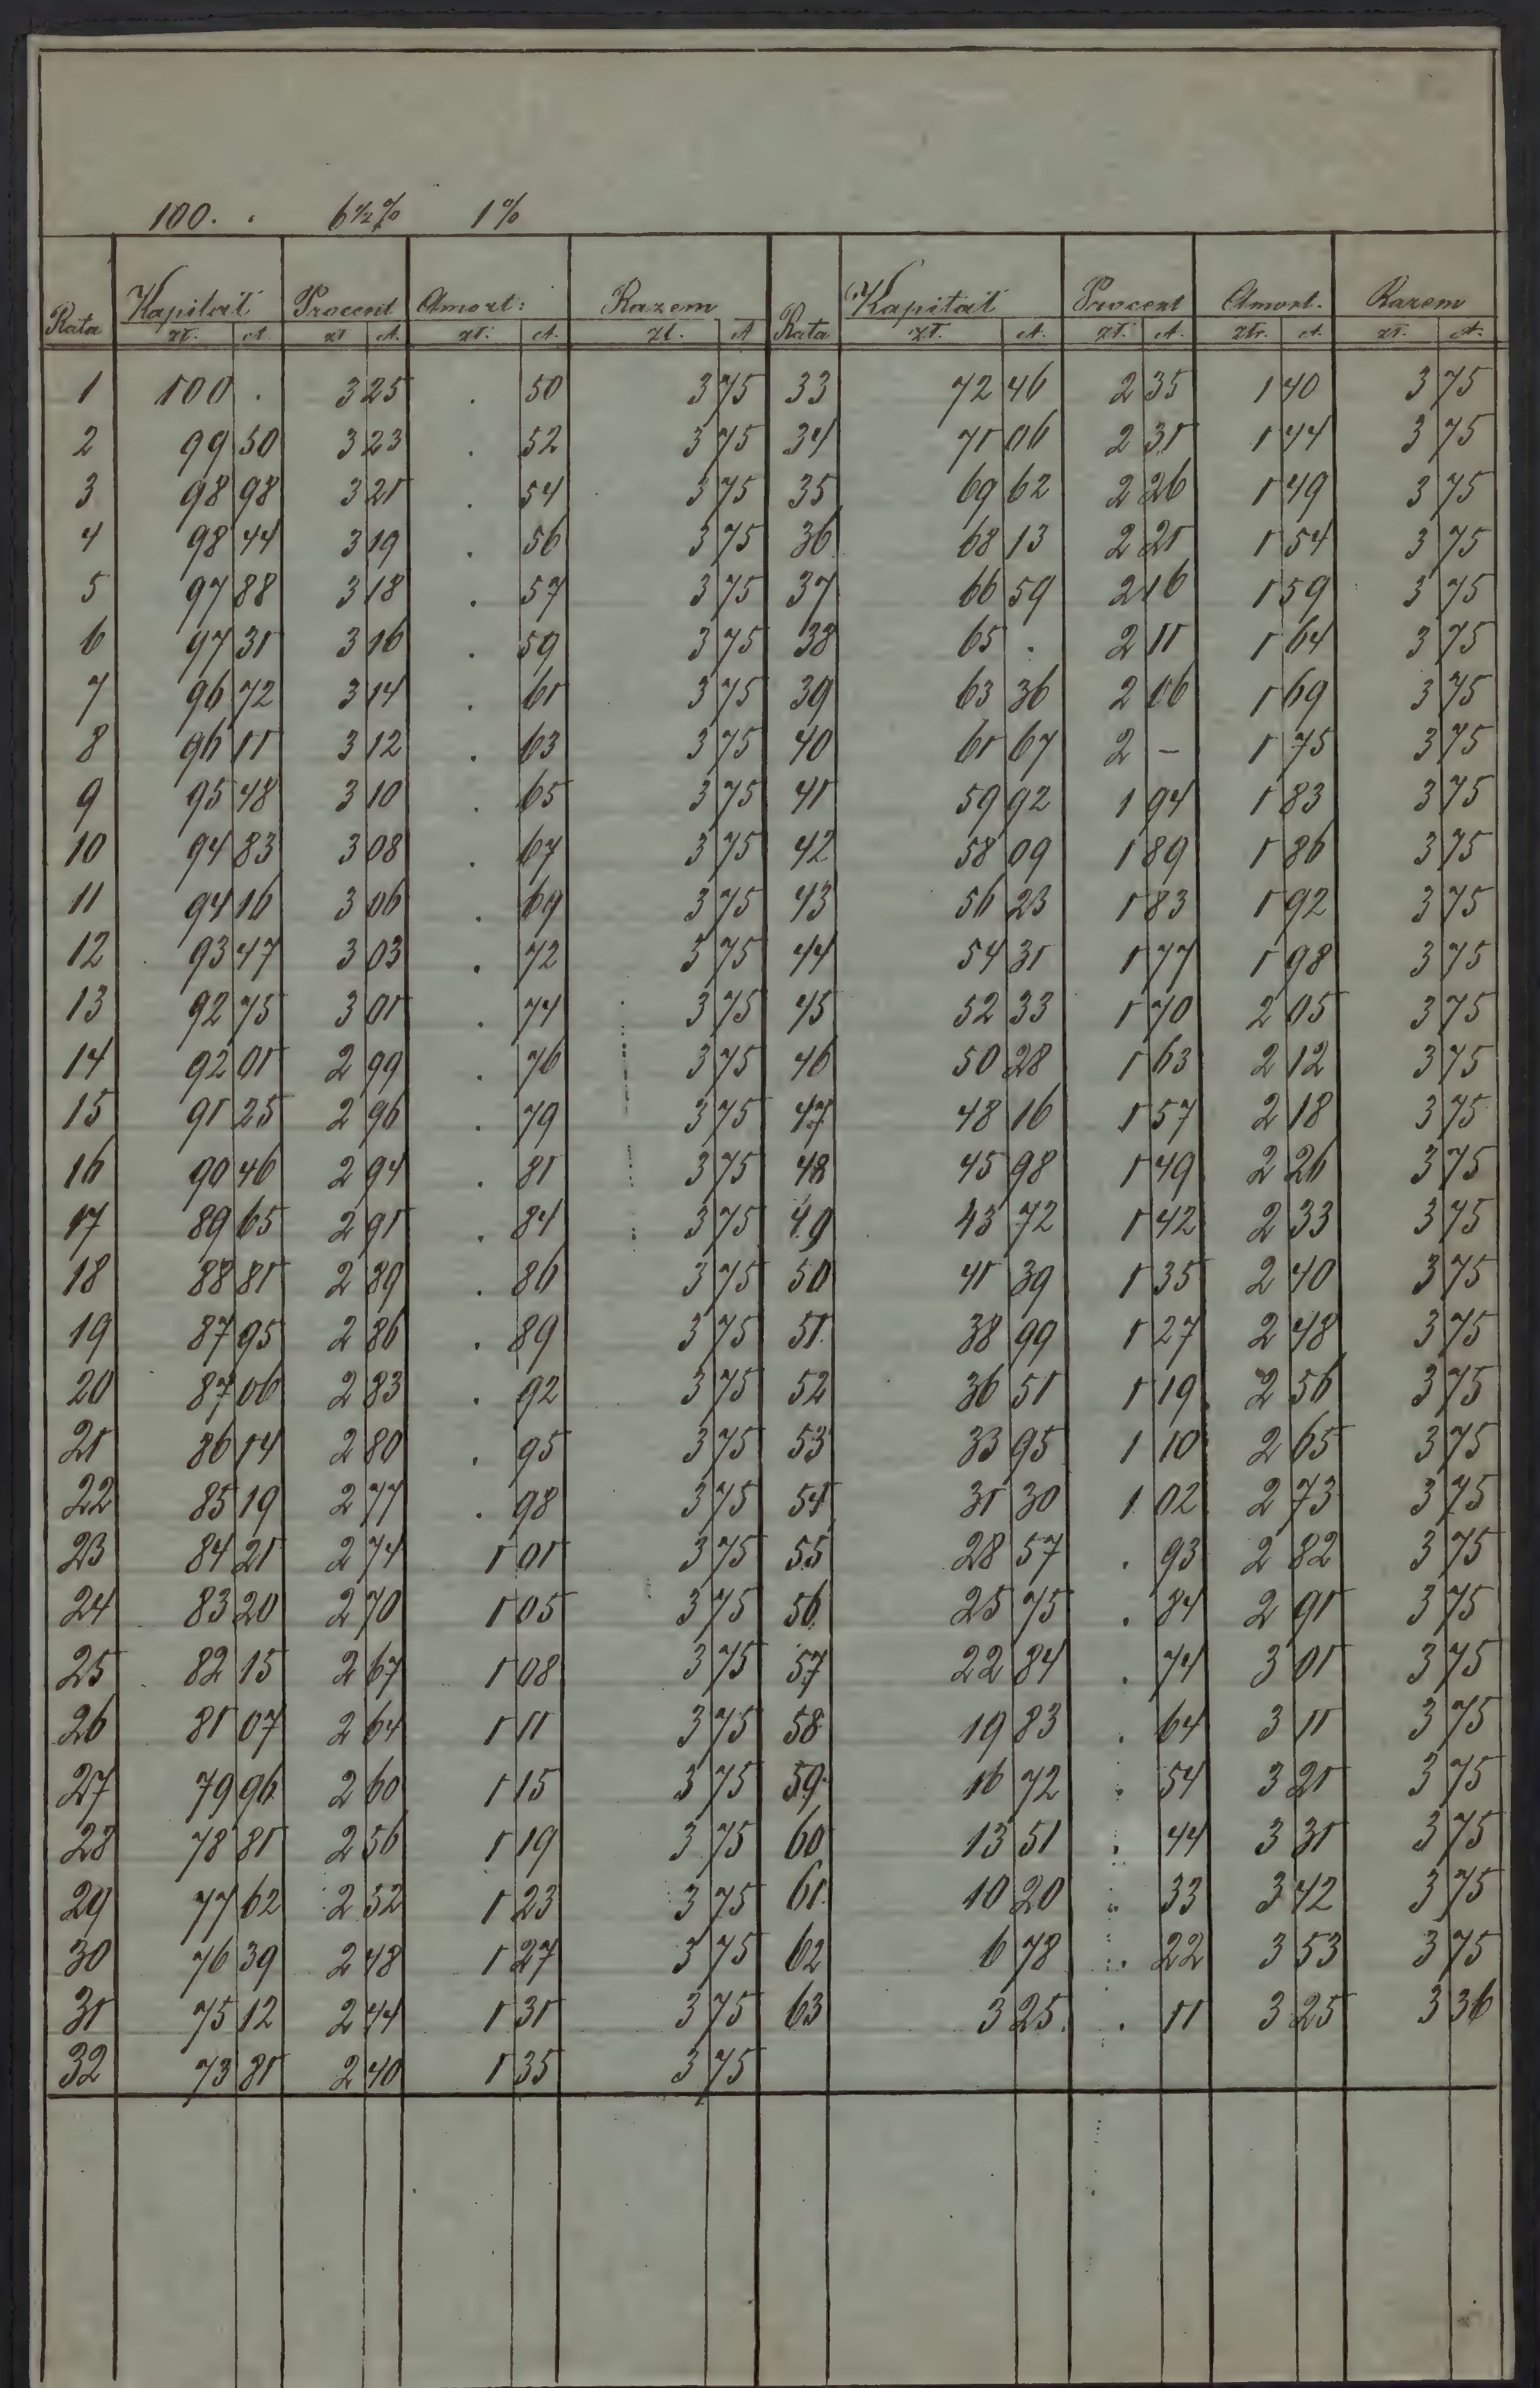 100. . 6½% 1%
Rata Kapitał Procent Amort: Razem Rata Kapitał Procent Amort. Razem
zł. ct. zł ct. zł. ct. zł. ct zł. ct. zł. ct. złr. ct. zł. ct.
1 100 . 3 25 . 50 3 75 33 72 46 2 35 1 40 3 75
2 99 50 3 23 . 52 3 75 34 71 06 2 31 1 44 3 75
3 98 98 3 21 . 54 3 75 35 69 62 2 26 1 49 3 75
4 98 44 3 19 . 56 3 75 36 68 13 2 21 1 54 3 75
5 97 88 3 18 . 57 3 75 37 66 59 2 16 1 59 3 75
6 97 31 3 16 . 59 3 75 38 65 . 2 11 1 64 3 75
7 96 72 3 14 . 61 3 75 39 63 36 2 06 1 69 3 75
8 96 11 3 12 . 63 3 75 40 61 67 2 - 1 75 3 75
9 95 48 3 10 . 65 3 75 41 59 92 1 94 1 83 3 75
10 94 83 3 08 . 67 3 75 42 58 09 1 89 1 86 3 75
11 94 16 3 06 . 69 3 75 43 56 23 1 83 1 92 3 75
12 93 47 3 03 . 72 3 75 44 54 31 1 77 1 98 3 75
13 92 75 3 01 . 74 3 75 45 52 33 1 70 2 05 3 75
14 92 01 2 99 . 76 3 75 46 50 28 1 63 2 12 3 75
15 91 25 2 96 . 79 3 75 47 48 16 1 57 2 18 3 75
16 90 46 2 94 . 81 3 75 48 45 98 1 49 2 26 3 75
17 89 65 2 91 . 84 3 75 49 43 72 1 42 2 33 3 75
18 88 81 2 89 . 86 3 75 50 41 39 1 35 2 40 3 75
19 87 95 2 86 . 89 3 75 51. 38 99 1 27 2 48 3 75
20 87 06 2 83 . 92 3 75 52 36 51 1 19 2 56 3 75
21 86 14 2 80 . 95 3 75 53 33 95 1 10 2 65 3 75
22 85 19 2 77 . 98 3 75 54 31 30 1 02 2 73 3 75
23 84 21 2 74 1 01 3 75 55 28 57 . 93 2 82 3 75
24 83 20 2 70 1 05 3 75 56 25 75 . 84 2 91 3 75
25 82 15 2 67 1 08 3 75 57 22 84 . 74 3 01 3 75
26 81 07 2 64 1 11 3 75 58 19 83 . 64 3 11 3 75
27 79 96 2 60 1 15 3 75 59. 16 72 . 54 3 21 3 75
28 78 81 2 56 1 19 3 75 60 13 51 . 44 3 31 3 75
29 77 62 2 52 1 23 3 75 61. 10 20 . 33 3 42 3 75
30 76 39 2 48 1 27 3 75 62 6 78 . 22 3 53 3 75
31 75 12 2 44 1 31 3 75 63 3 25. . 11 3 25 3 36
32 73 81 2 40 1 35 3 75